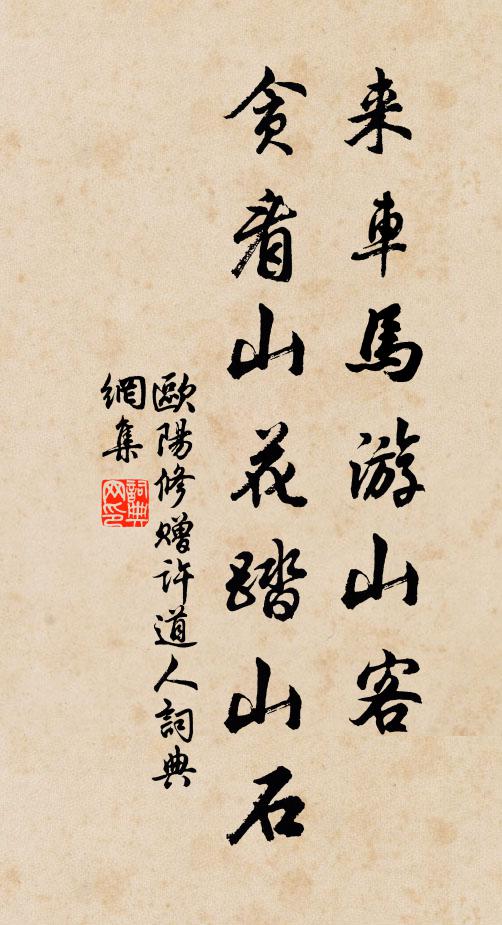 来車馬游山客
貪看山花踏山石
歐陽修贈許道人詞典
網集
詞典
网印